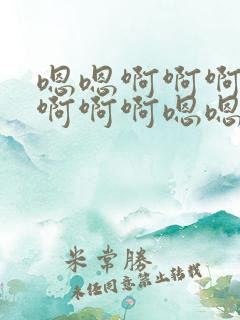 嗯嗯啊啊啊
啊啊啊嗯嗯
米常勝
未经同意禁止转载